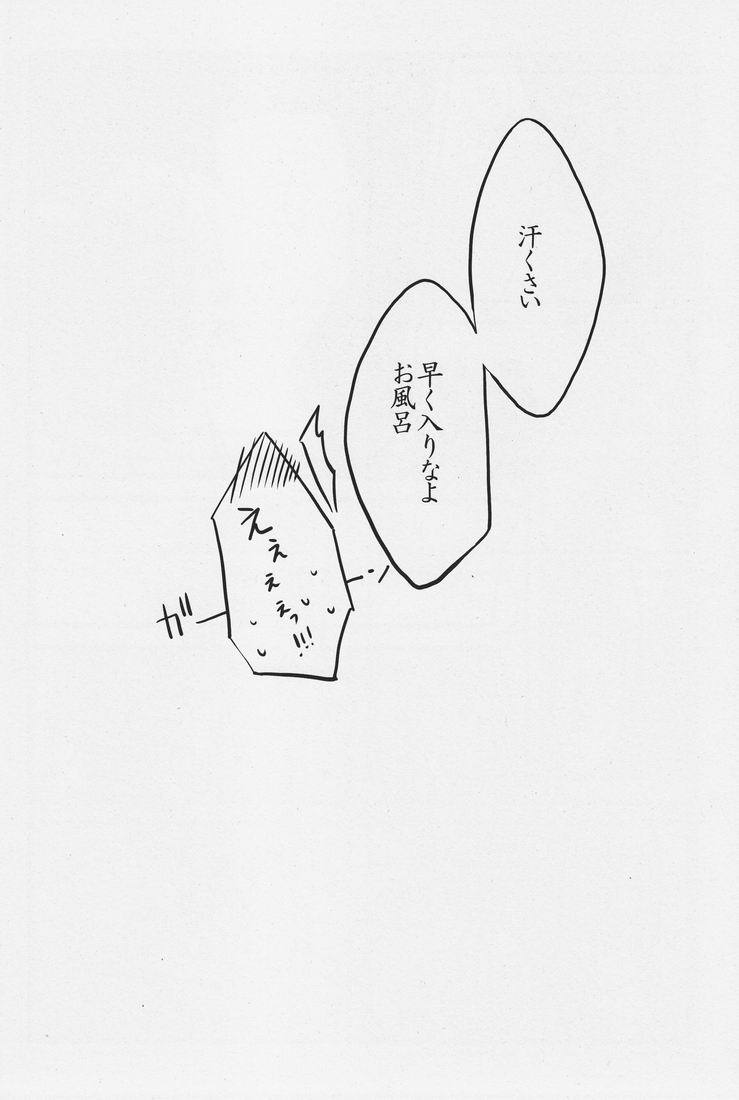 汗くさい
早く入りなよ
お風呂
えぇぇぇっ!!!
ガーン